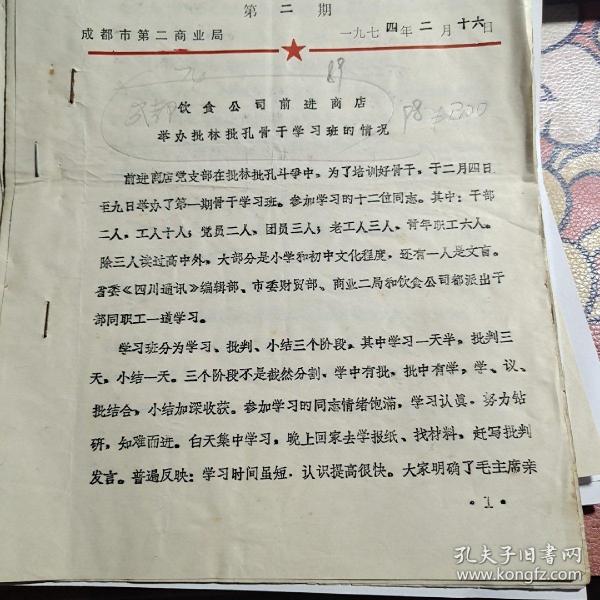 第二期
成都市第二商业局 一九七四年二月十六日
成都饮食公司前进商店
举办批林批孔骨干学习班的情况
前进商店党支部在批林批孔斗争中，为了培训好骨干，于二月四日
至九日举办了第一期骨干学习班。参加学习的十二位同志。其中：干部
二人，工人十人；党员二人、团员三人；老工人三人、青年职工六人。
除三人读过高中外，大部分是小学和初中文化程度，还有一人是文盲。
省委《四川通讯》编辑部、市委财贸部、商业二局和饮食公司都派出干
部同职工一道学习。
学习班分为学习、批判、小结三个阶段。其中学习一天半，批判三
天，小结一天。三个阶段不是截然分割，学中有批，批中有学，学、议、
批结合，小结加深收获。参加学习的同志情绪饱满，学习认真，努力钻
研，知难而进。白天集中学习，晚上回家去学报纸、找材料，赶写批判
发言。普遍反映：学习时间虽短，认识提高很快。大家明确了毛主席亲
·1·
孔夫子旧书网
www.kongfz.com